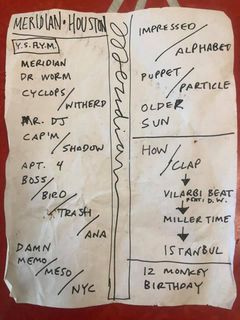 MERIDIAN • HOUSTON
Y.S.R.Y.M.
MERIDIAN
DR WORM
CYCLOPS/
WITHERD
MR. DJ
CAP'M/
SHADOW
APT. 4
BOSS/
BIRD/
TRASH/
ANA
DAMN
MEMO/
MESO/
NYC
Meridian
IMPRESSED/
ALPHABET
PUPPET/
PARTICLE
OLDER
SUN
HOW/
CLAP
VILARBI BEAT
FEAT: D.W.
MILLER TIME
ISTANBUL
12 MONKEY
BIRTHDAY